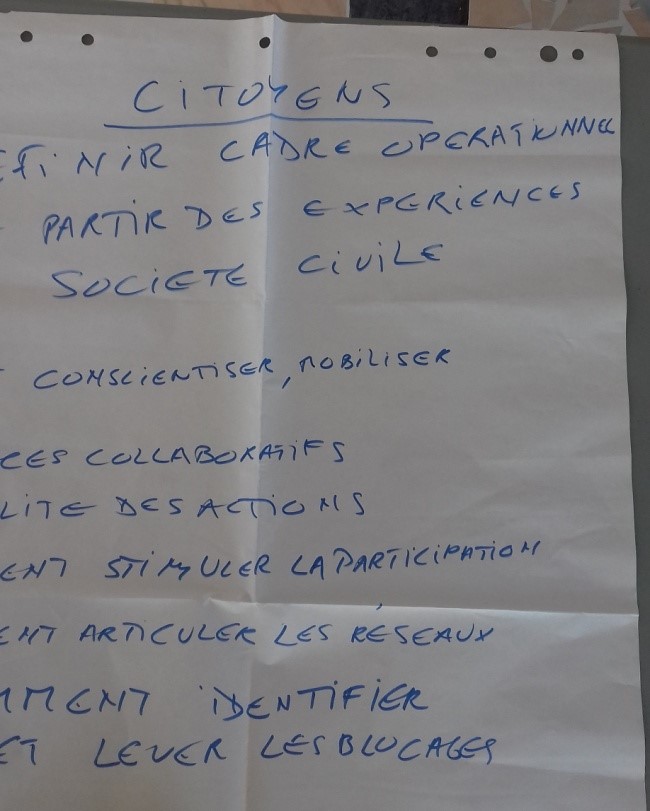 CITOYENS
EFINIR CADRE OPERATIONNEL
PARTIR DES EXPERIENCES
SOCIETE CIVILE
CONSCIENTISER, MOBILISER
CES COLLABORATIFS
LITE DES ACTIONS
ENT STIMULER LA PARTICIPATION
ENT ARTICULER LES RÉSEAUX
MMENT IDENTIFIER
ET LEVER LES BLOCAGES